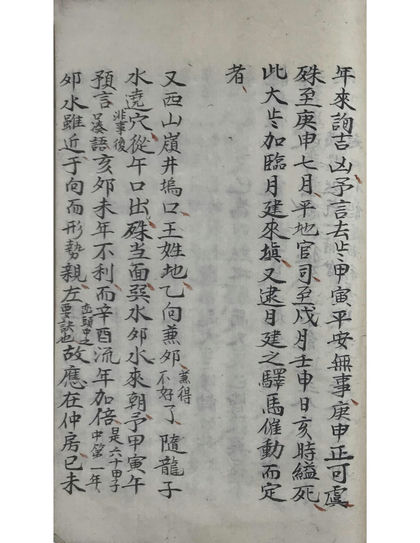 年來詢吉凶予言去止甲寅平安無事庚申正可虞
殊至庚申七月平地官司至戌月壬申日亥時縊死
此大止加臨月建來填又逮月建之驛馬催動而定
者
又西山嶺井塢口王姓地乙向兼夘兼得不好了隨龍子
水遶穴從午口出殊当面巽水夘水來朝予甲寅午
預言非事後語亥夘未年不利而辛酉流年加倍是六十甲子中第一年
夘水雖近于向而形勢親左巒頭中之要訣也故應在仲房已未